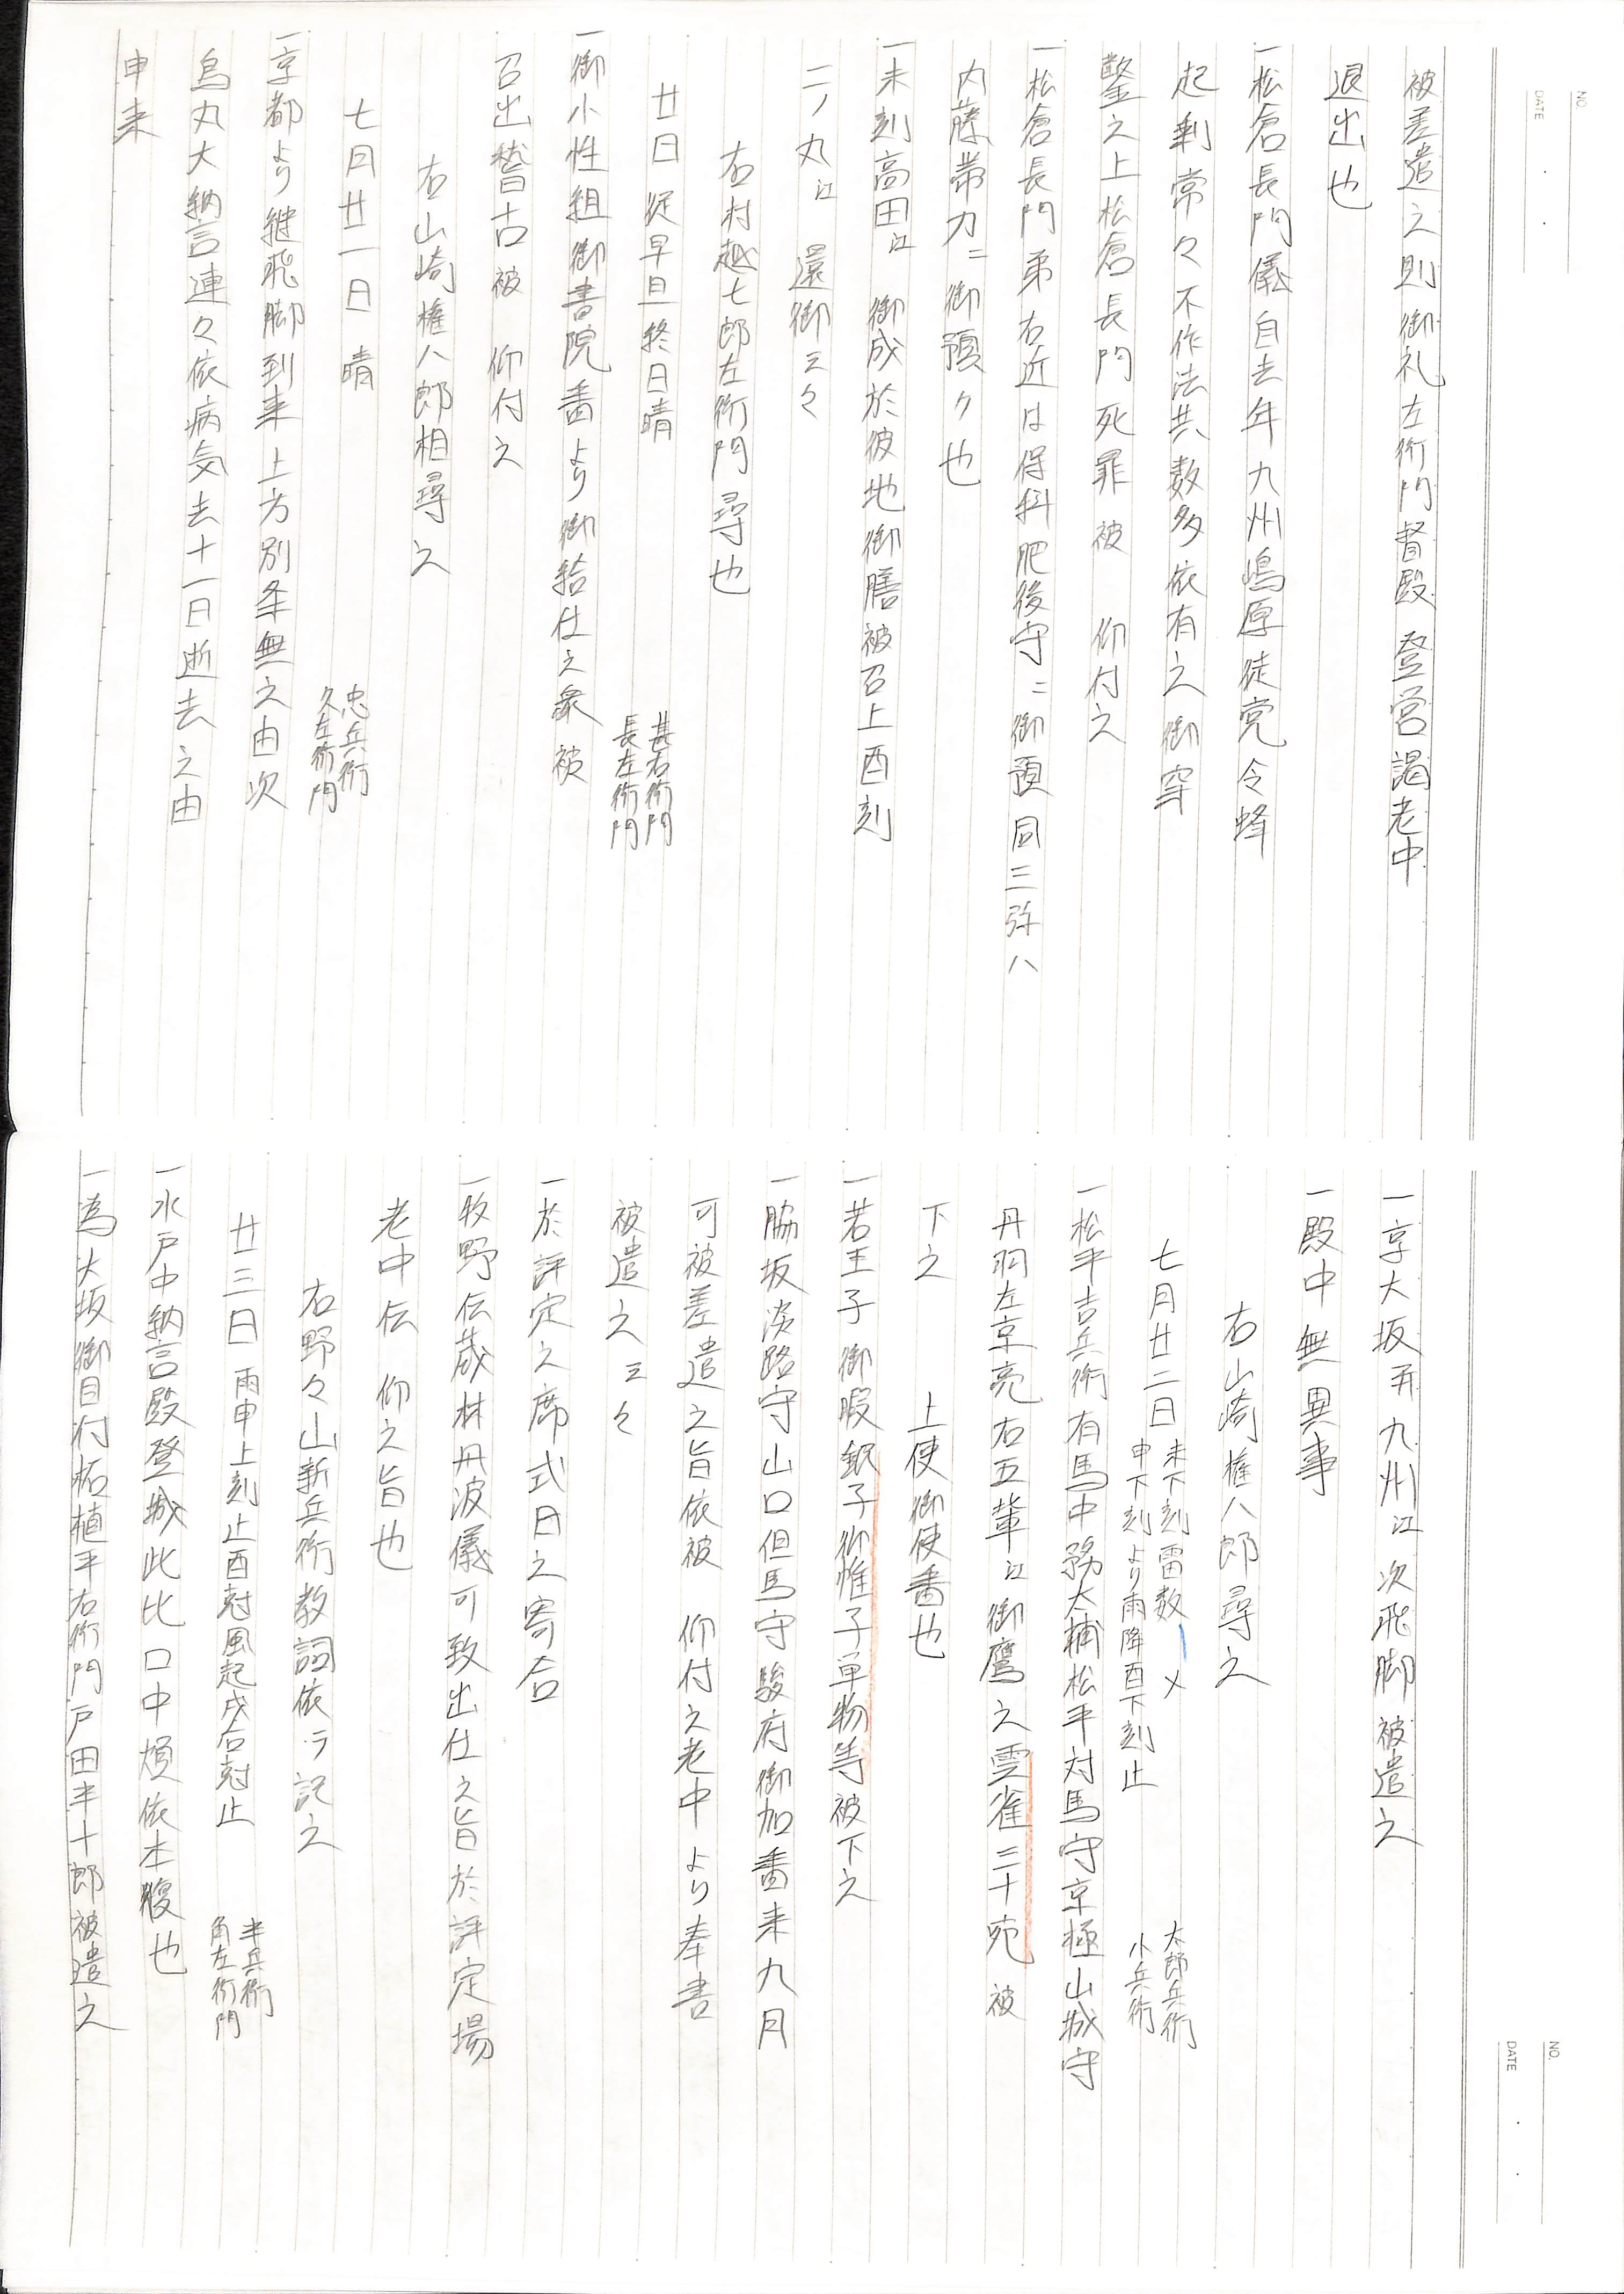 NO.
DATE
被差遣之則御礼左衛門督殿登営謁老中
退出也
一松倉長門儀自去年九州嶋原徒党令蜂
起剰常々不作法共数多依有之御穿
鑿之上松倉長門死罪被 仰付之
一松倉長門弟右近は保科肥後守ニ御預同三弥ハ
内藤帯刀ニ御預ケ也
一未刻高田江 御成於彼地御膳被召上酉刻
二ノ丸江 還御云々
右村越七郎左衛門尋也
廿日従早旦終日晴 甚右衛門
長左衛門
一御小性組御書院番より御給仕之衆被
召出稽古被 仰付之
右山崎権八郎相尋之
七月廿一日 晴 忠兵衛
久左衛門
一京都より継飛脚到来上方別条無之由次
烏丸大納言連々依病気去十一日逝去之由
申来
NO.
DATE
一京大坂并九州江次飛脚被遣之
一殿中無異事
右山崎権八郎尋之
七月廿二日 未下刻雷数〆 太郎兵衛
申下刻より雨降酉下刻止 小兵衛
一松平吉兵衛有馬中務太輔松平対馬守京極山城守
丹羽左京亮右五輩江御鷹之雲雀三十宛被
下之 上使御使番也
一若王子御暇銀子御帷子単物等被下之
一脇坂淡路守山口但馬守駿府御加番来九月
可被差遣之旨依被 仰付之老中より奉書
被遣之云々
一於評定之席式日之寄合
一牧野伝蔵林丹波儀可致出仕之旨於評定場
老中伝 仰之旨也
右野々山新兵衛教詞依ラ記之
廿三日 雨申上刻止酉尅風起戌后尅止 半兵衛
角左衛門
一水戸中納言殿登城此比口中煩依本腹也
一為大坂御目付柘植平右衛門戸田半十郎被遣之